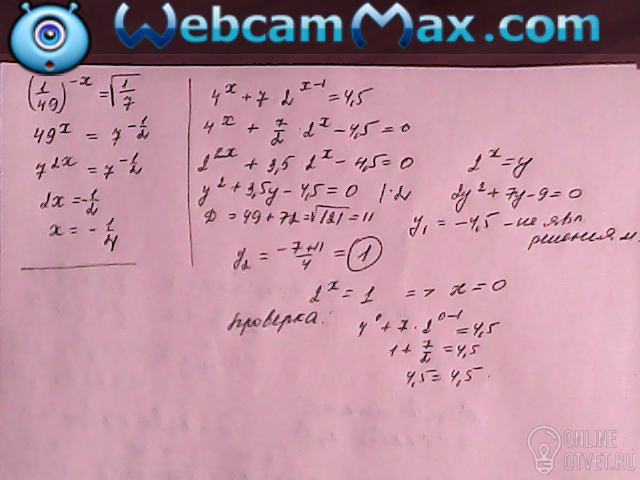 WebcamMax.com
(1/49)^-x = √(1/7)
49^x = 7^-1/2
7^2x = 7^-1/2
2x = -1/2
x = -1/4
4^x + 7 · 2^x-1 = 4,5
4^x + 7/2 · 2^x - 4,5 = 0
2^2x + 3,5 · 2^x - 4,5 = 0
2^x = y
y² + 3,5y - 4,5 = 0 | · 2
2y² + 7y - 9 = 0
D = 49 + 72 = √121 = 11
y₁ = -4,5 - не явл.
решением
y₂ = (-7+11)/4 = 1
2^x = 1 => x = 0
проверка:
4^0 + 7 · 2^0-1 = 4,5
1 + 7/2 = 4,5
4,5 = 4,5.
ONLINE
OTVET.RU